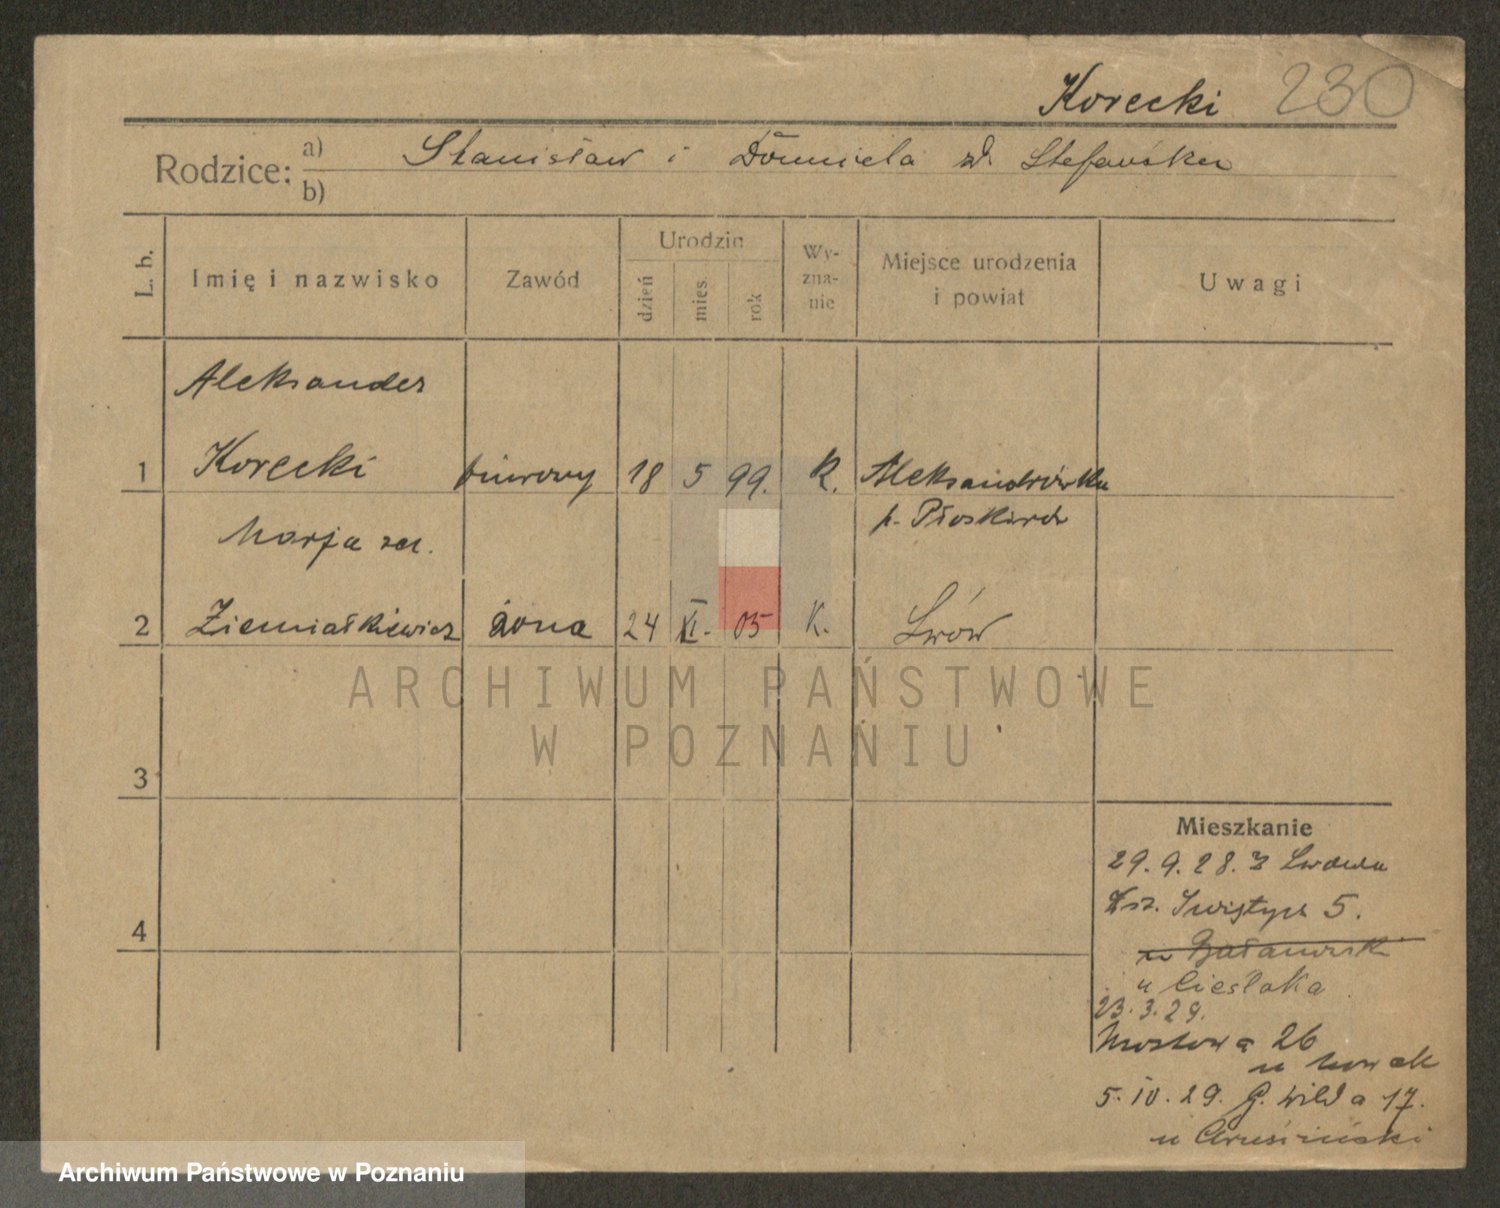 Korecki 230
Rodzice: a) Stanisław i Domicela zd. Stefańska
b)
L. b. Imię i nazwisko Zawód Urodzin dzień mies. rok Wy-zna-nie Miejsce urodzenia i powiat Uwagi
Aleksander
1 Korecki biurowy 18 5 99. K. Aleksandrówka
p. Płoskirów
Marja zd.
2 Ziemiałkiewicz żona 24 XI. 05 K. Lwów
ARCHIWUM PAŃSTWOWE
W POZNANIU
3
4
Mieszkanie
29. 9. 28. z Lwowa
5.
u Cieślaka
23. 3. 29.
Mostowa 26
u Nowak
5. IV. 29. G. Wilda 17.
u
Archiwum Państwowe w Poznaniu